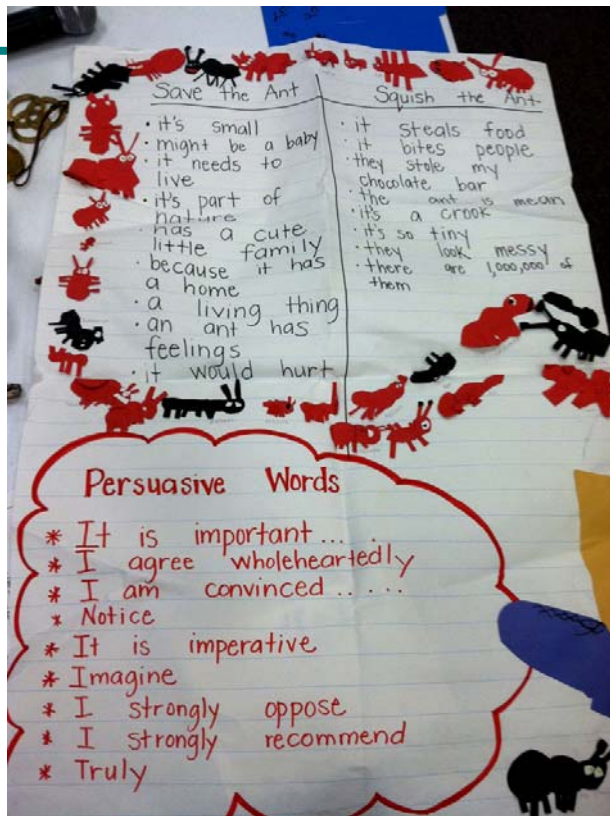 Save the Ant
· it's small
· might be a baby
· it needs to
live
· it's part of
nature
· has a cute
little family
· because it has
a home
· a living thing
· an ant has
feelings
· it would hurt
Squish the Ant
· it steals food
· it bites people
· they stole my
chocolate bar
· the ant is mean
· it's a crook
· it's so tiny
· they look messy
· there are 1,000,000 of
them
Persuasive Words
* It is important... .
* I agree wholeheartedly
* I am convinced.....
* Notice
* It is imperative
* Imagine
* I strongly oppose
* I strongly recommend
* Truly